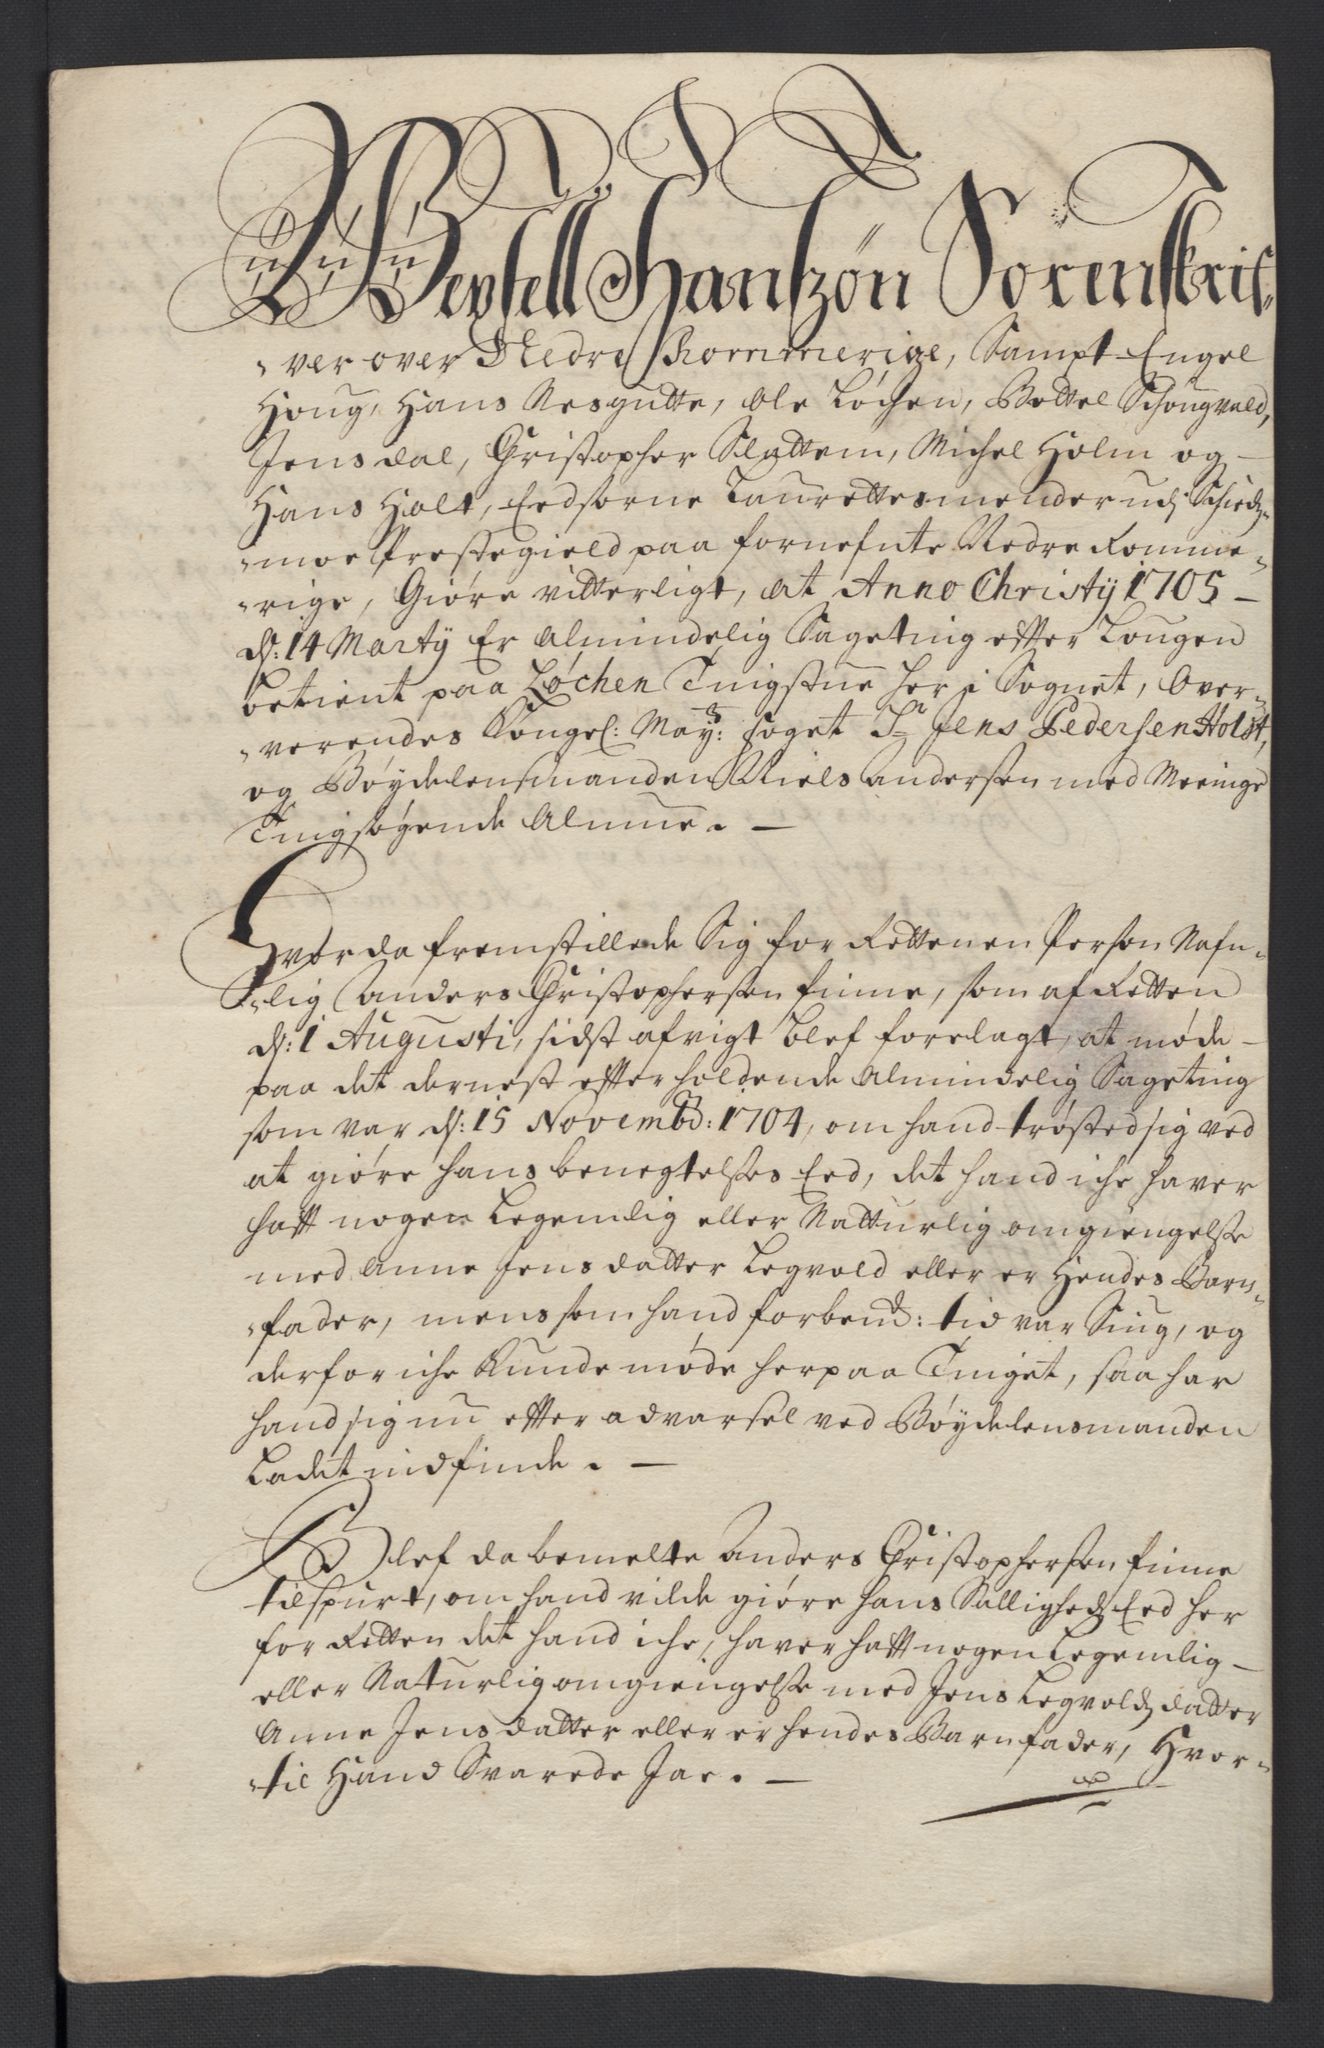 Bertell Hanszøn Sorenskrif-
ver over Nedre Rommerige, Sampt Engel
Houg, Hans Nesgutte, Ole Løchen, Bottel Schougvald,
Jens dal, Christopher Slattem, Michel Holm og
Hans Holt, Eedsorne Laurettesmender udj Schieds-
moe Prestegield paa fornefnte Nedre Romme-
rige, Giøre vitterligt, at Anno Christÿ 1705
d: 14 Martÿ Er Almindelig Sageting efter Lougen
betient paa Løchen Tingstue her i Sognet, Over-
verendes Kongel: May: foget Sr Jens Pedersen Holst,
og Bøydelensmanden Niels Andersen med Meenige
Tingsøgende Almue.
Hvor da fremstillede Sig for Retten en Person Nafn-
lig Anders Christophersen finne, som af Retten
d: 1 Augusti, sidst afvigt blef forelagt, at møde
paa det dernest efterholdende Almindelig Sageting
som var d: 15 Novembd: 1704, om hand trøsted sig ved
at giøre hans benegtelses Eed, det hand iche haver
haft nogen Legemlig eller Natturlig omgiengelse
med Anne Jensdatter Legvold eller er Hendes Barn-
fader, mens som hand forbemd: tid var Siug, og
derfor iche Kunde møde her paa Tinget, saa har
hand sig nu efter advarsel ved Bøydelensmanden
Ladet indfinde.
Blef da bemelte Anders Christophersen finne
tilspurt, om hand vilde giøre hans Salligheds Eed her
for Retten det hand iche, haver haft nogen Legemlig
eller Naturlig omgiengelse med Jens Legvolds datter
Anne Jensdatter eller er hendes Barnfader, Hvor-
til Hand Svarede Jae.